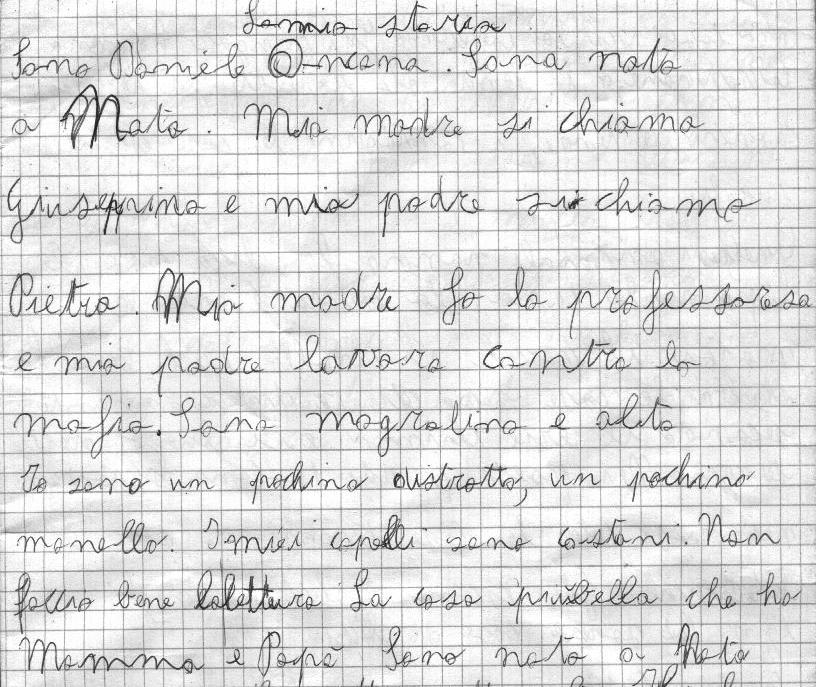 La mia storia
Sono Daniele Oncana. Sono nato
a Mato. Mia madre si chiama
Giuseppina e mia padre si chiama
Pietro. Mia madre fa la professoresa
e mio padre lavora contro la
mafia. Sono magrolino e alto
Io sono un pochino distratto, un pochino
monello. I miei capelli sono castani. Non
faccio bene la lettura La cosa più bella che ho
Mamma e Papà Sono nato a Mato